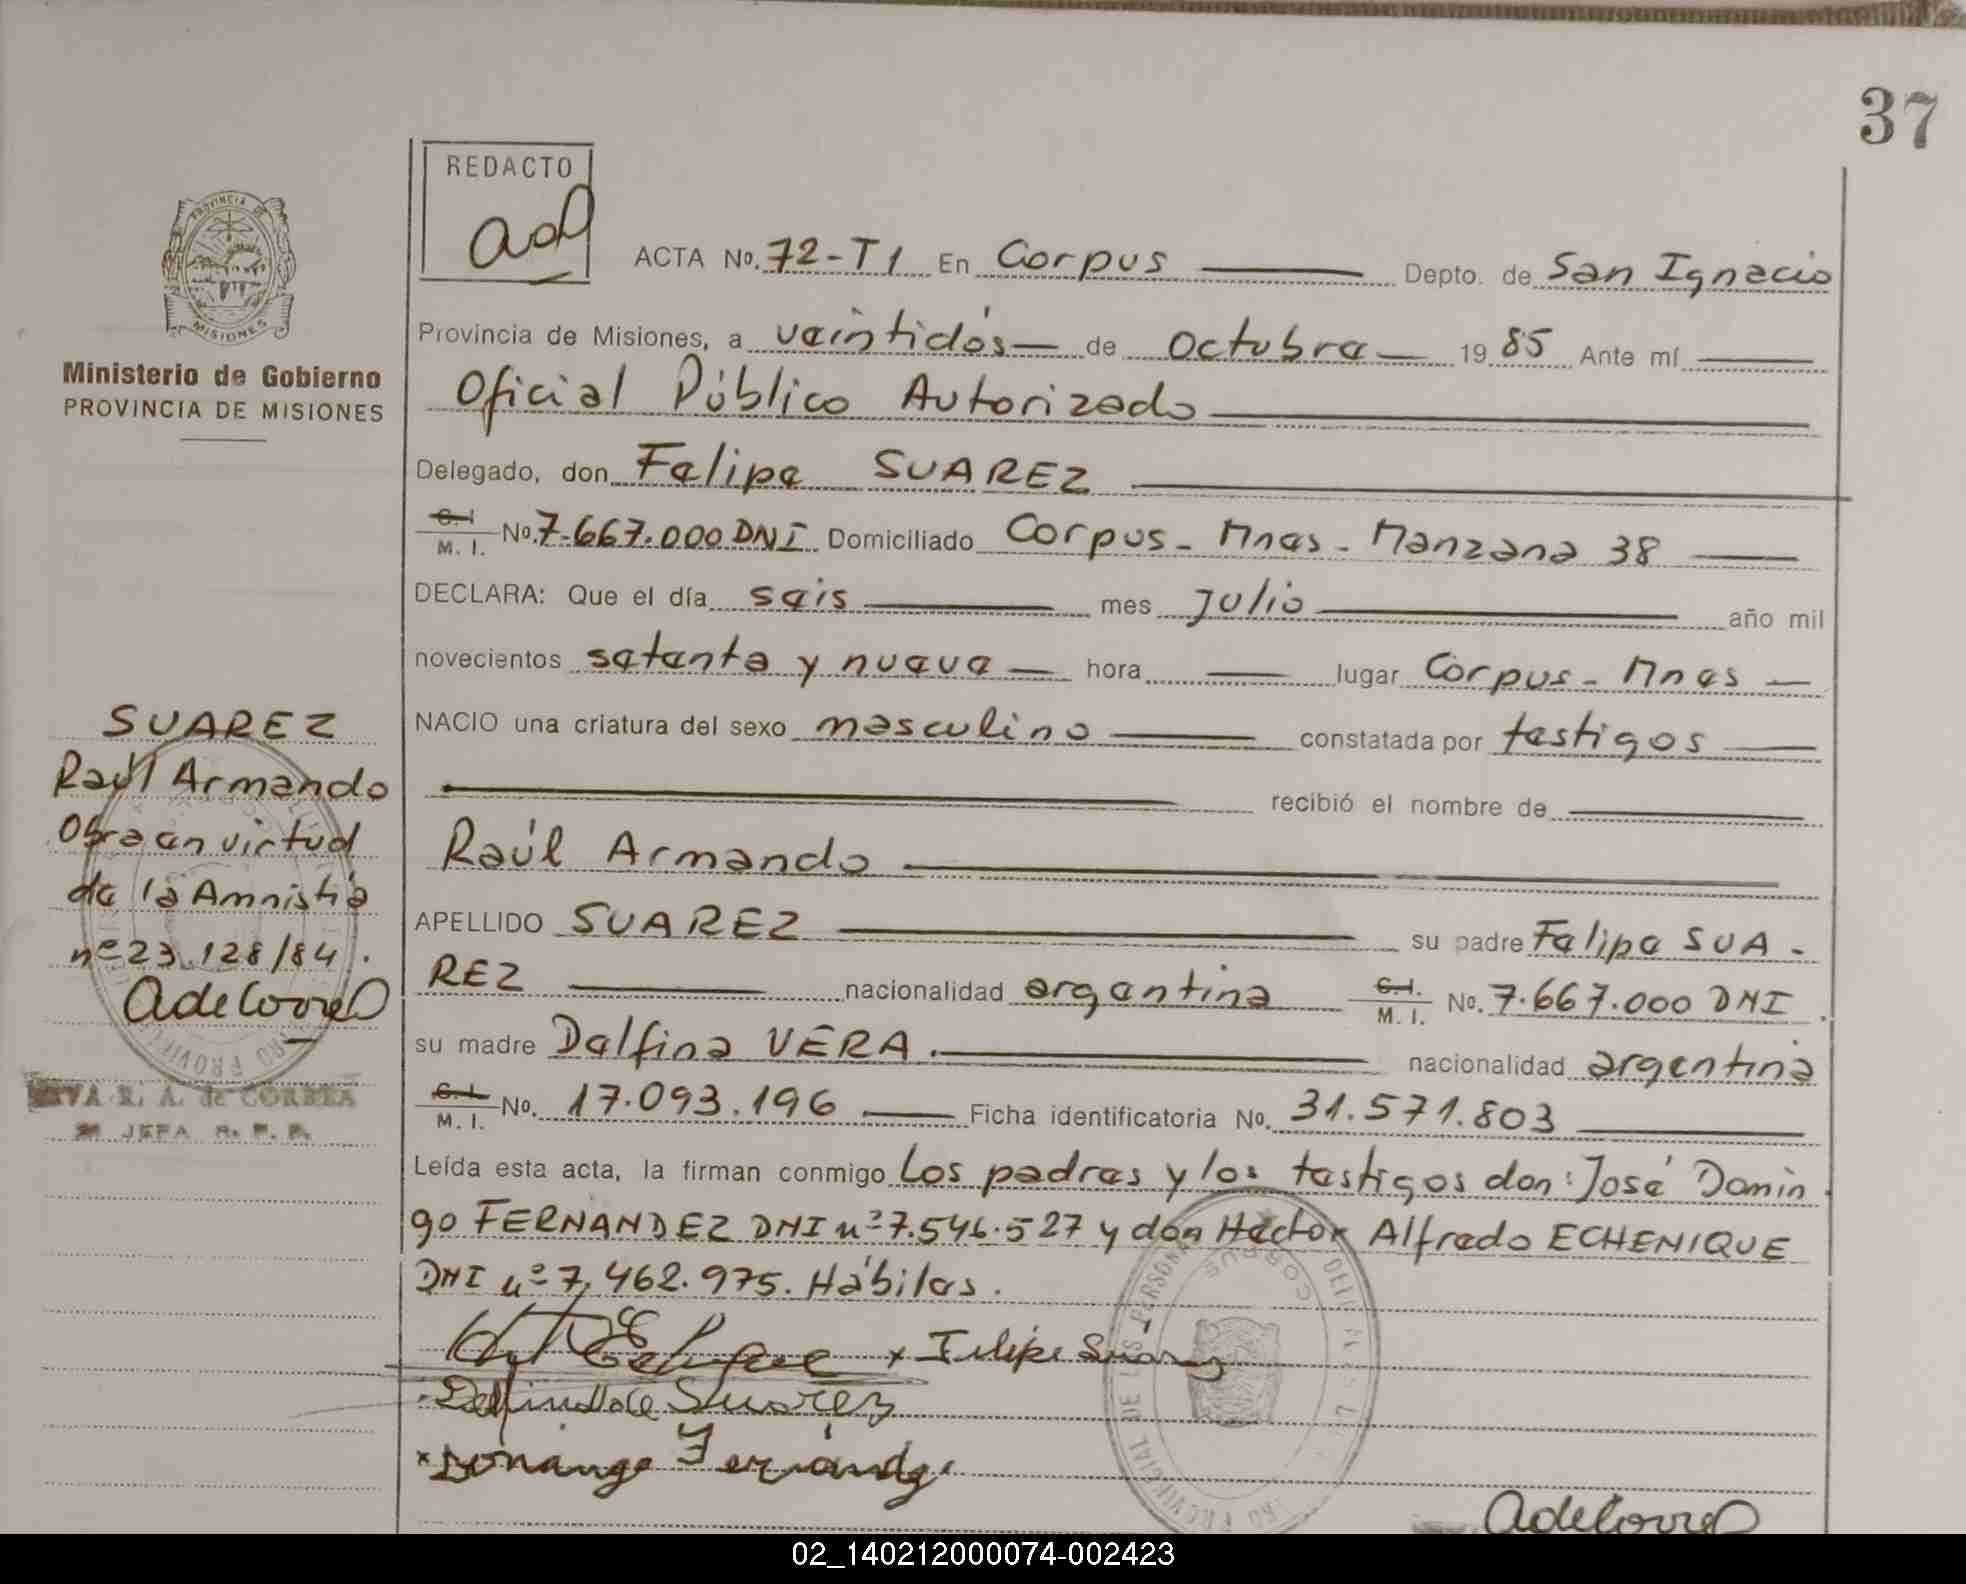 37
REDACTO
ACTA No. 72-T1 En Corpus Depto. de San Ignacio
Provincia de Misiones, a veintidós de octubre 1985 Ante mí
Oficial Público Autorizado
Delegado, don Felipe SUAREZ
C. I. / M. I. No. 7.667.000 DNI Domiciliado Corpus - Mnes - Manzana 38
DECLARA: Que el día seis mes julio año mil
novecientos setenta y nueve hora lugar Corpus - Mnes
NACIO una criatura del sexo masculino constatada por testigos
recibió el nombre de
Raúl Armando
APELLIDO SUAREZ su padre Felipe SUA-
REZ nacionalidad argentina C.I. / M. I. No. 7.667.000 DNI
su madre Delfina VERA. nacionalidad argentina
C. I. / M. I. No. 17.093.196 Ficha identificatoria No. 31.571.803
Leída esta acta, la firman conmigo Los padres y los testigos don: José Domin
go FERNANDEZ DNI nº 7.546.527 y don Hector Alfredo ECHENIQUE
DNI nº 7,462.975. Hábiles.
x Felipe Suarez
Suarez
x Domingo Fernández
PROVINCIA DE
MISIONES
Ministerio de Gobierno
PROVINCIA DE MISIONES
SUAREZ
Raúl Armando
Obra en virtud
de la Amnistía
nº 23.128/84.
R. A. de CORREA
JEFA R. P. P.
CORPUS
PROVINCIAL DE LAS PERSONAS
02_140212000074-002423